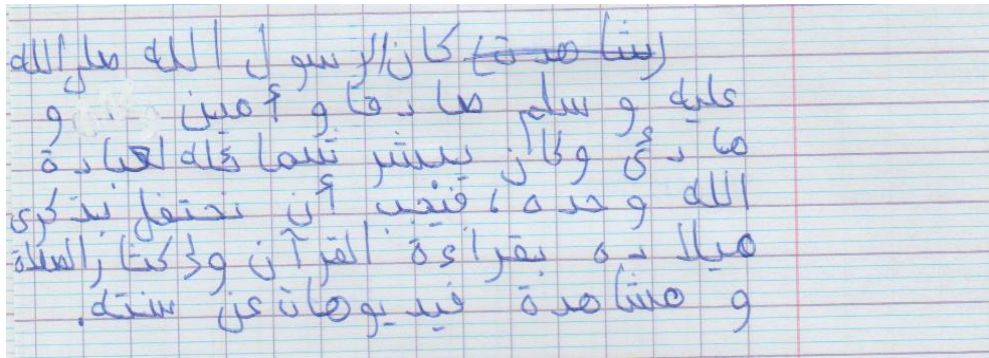 (شاهدة) كان الرسول الله صلى الله
عليه و سلم صادقا و أمين و
هادئ وكان ينشر تسامحه لعبادة
الله وحده، فيجب أن نحتفل بذكرى
ميلاده بقراءة القرآن وإكثار الصلاة
و مشاهدة فيديوهات عن سنته.